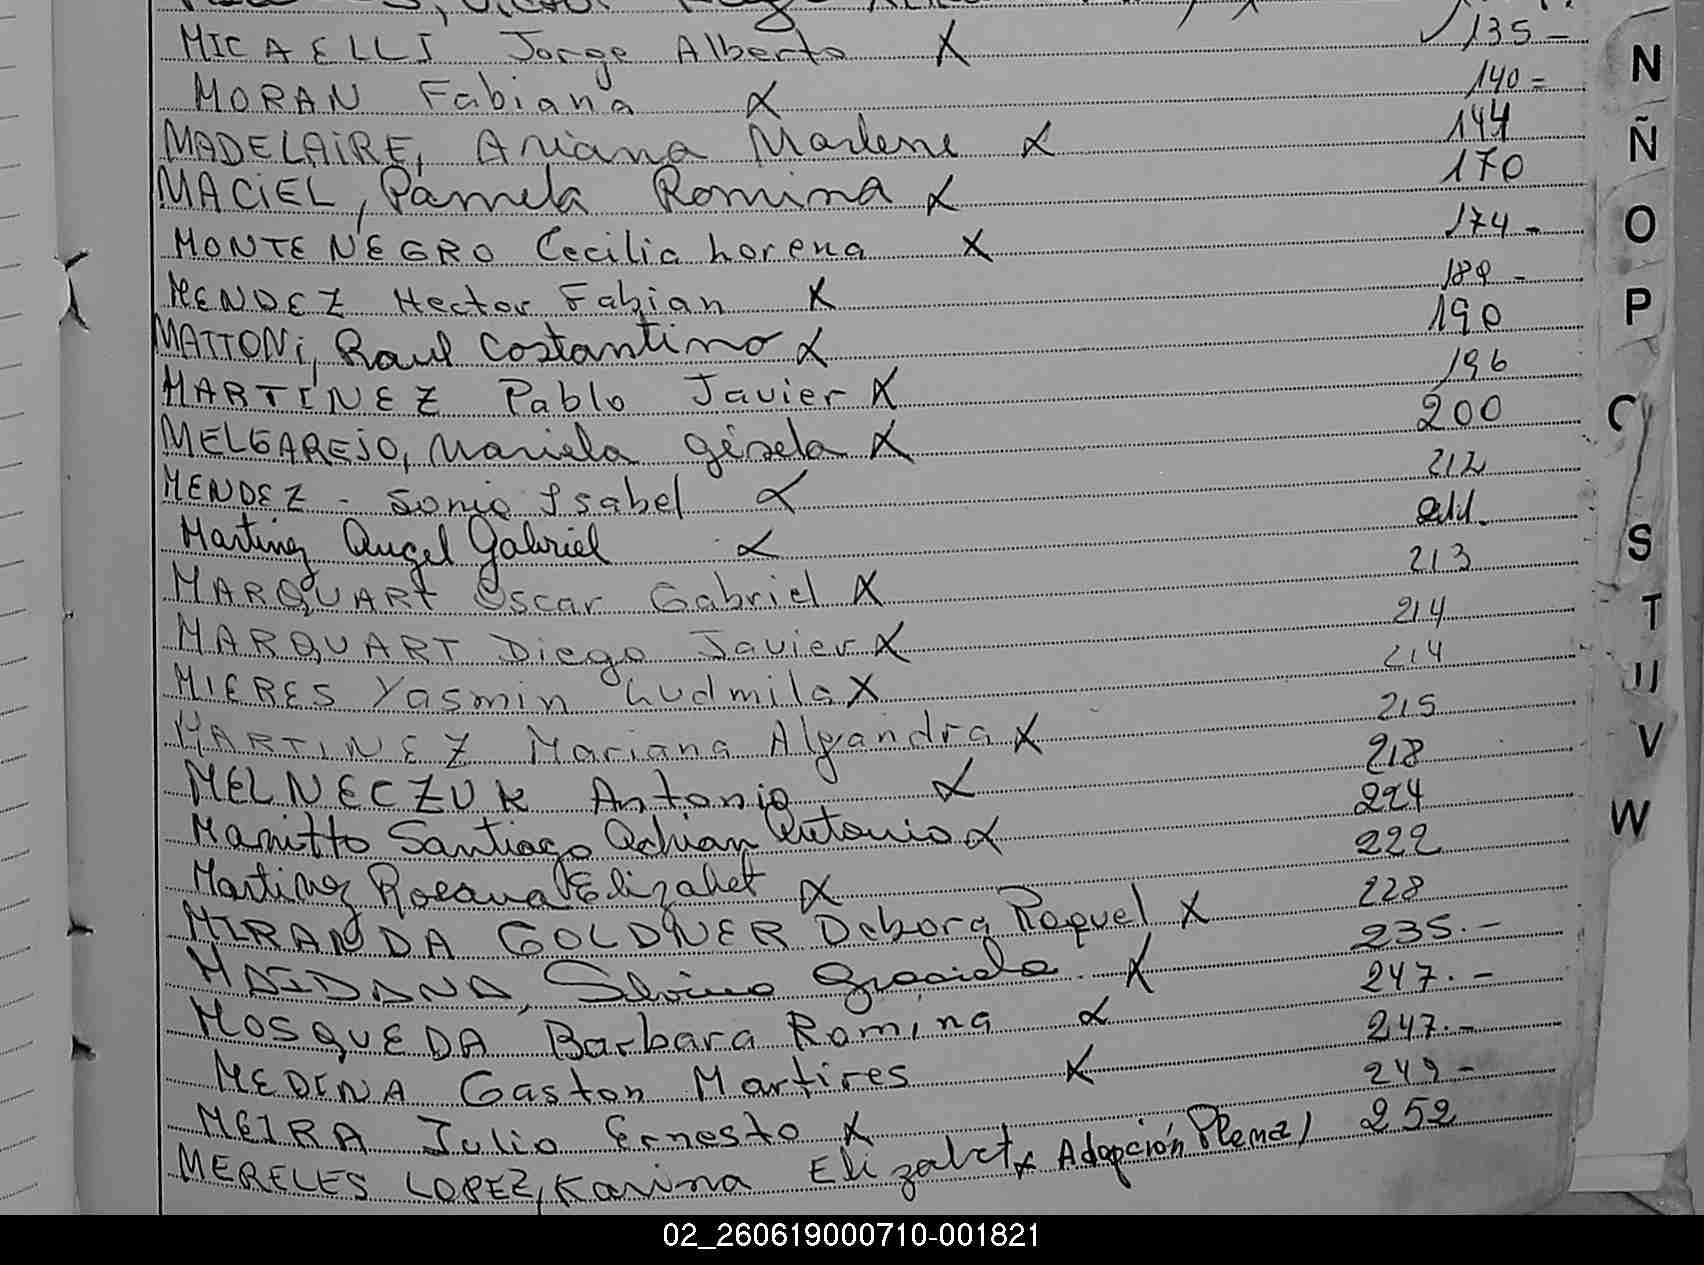 MICAELLI Jorge Alberto X 135-
MORAN Fabiana X 140=
MADELAIRE, Ariana Marlene X 144
MACIEL, Pamela Romina X 170
MONTENEGRO Cecilia Lorena X 174-
MENDEZ Hector Fabian X 189-
MATTONi, Raul Costantino X 190
MARTINEZ Pablo Javier X 196
MELGAREJO, Mariela Gisela X 200
MENDEZ - Sonia Isabel X 212
Martinez Angel Gabriel X
MARQUART Oscar Gabriel X 213
MARQUART Diego Javier X 214
MIERES Yasmin Ludmila X 214
MARTINEZ Mariana Alejandra X 215
MELNECZUK Antonio X 218
Manitto Santiago Adrian Antonio X 224
Martinez Roxana Elizabet X 222
MIRANDA GOLDNER Debora Raquel X 228
MAIDANA, Silvina Graciela. X 235.-
MOSQUEDA Barbara Romina X 247.-
MEDINA Gaston Martires X 247.-
MEIRA Julio Ernesto X 249-
MERELES LOPEZ, Karina Elizabet X Adopción Plena) 252
N
Ñ
O
P
S
T
U
V
W
02_260619000710-001821